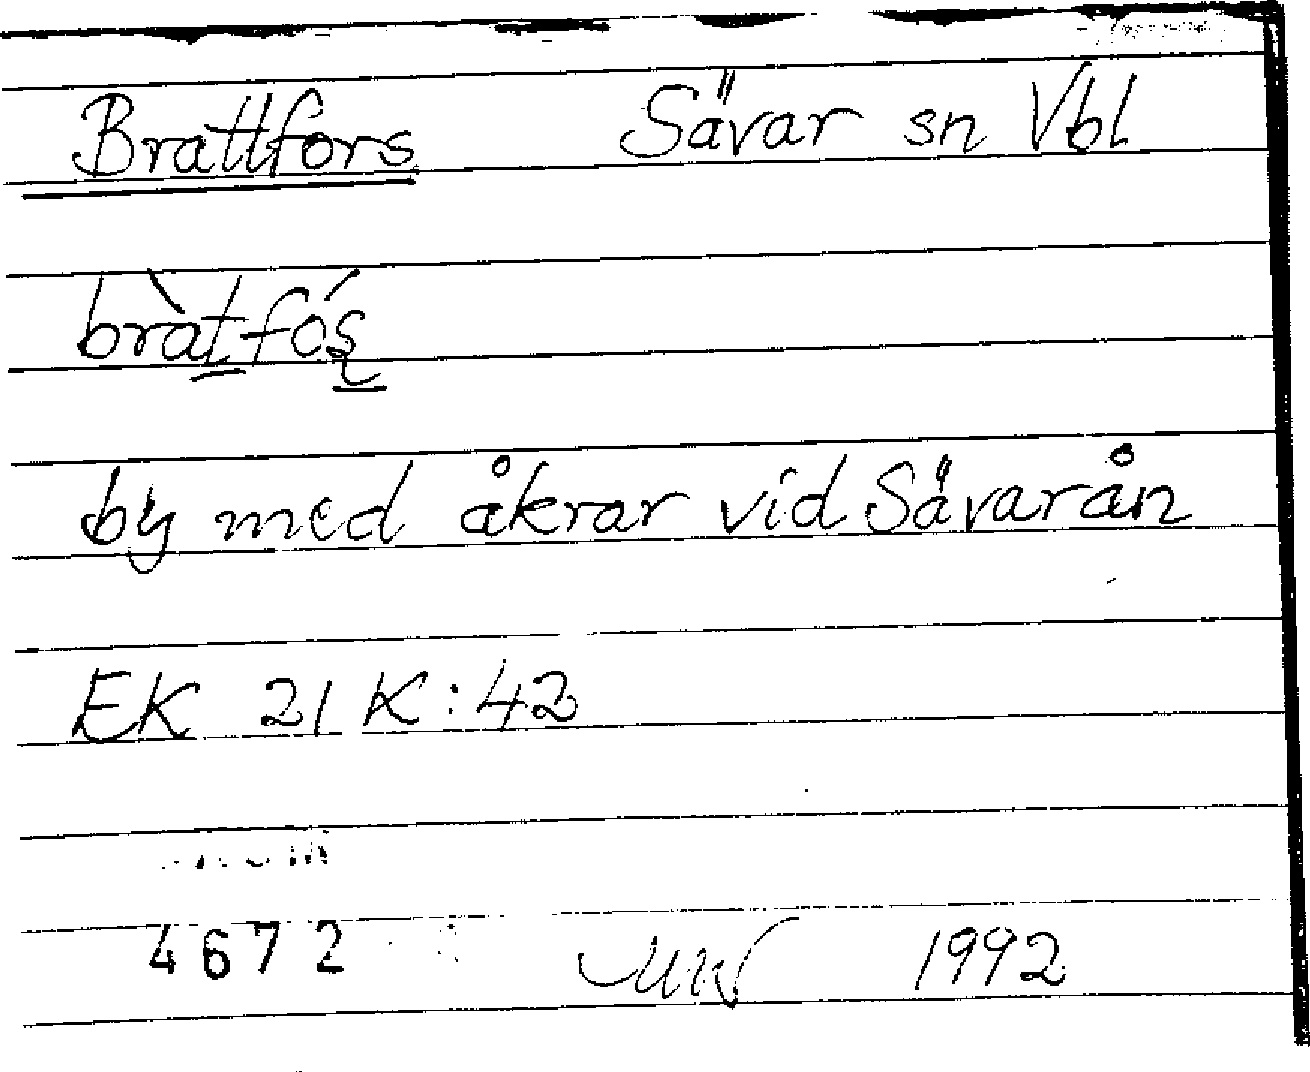 Brattfors Sävar sn Vbl
bràtfóş
by med åkrar vid Sävarån
EK 21 K:42
4672 1992